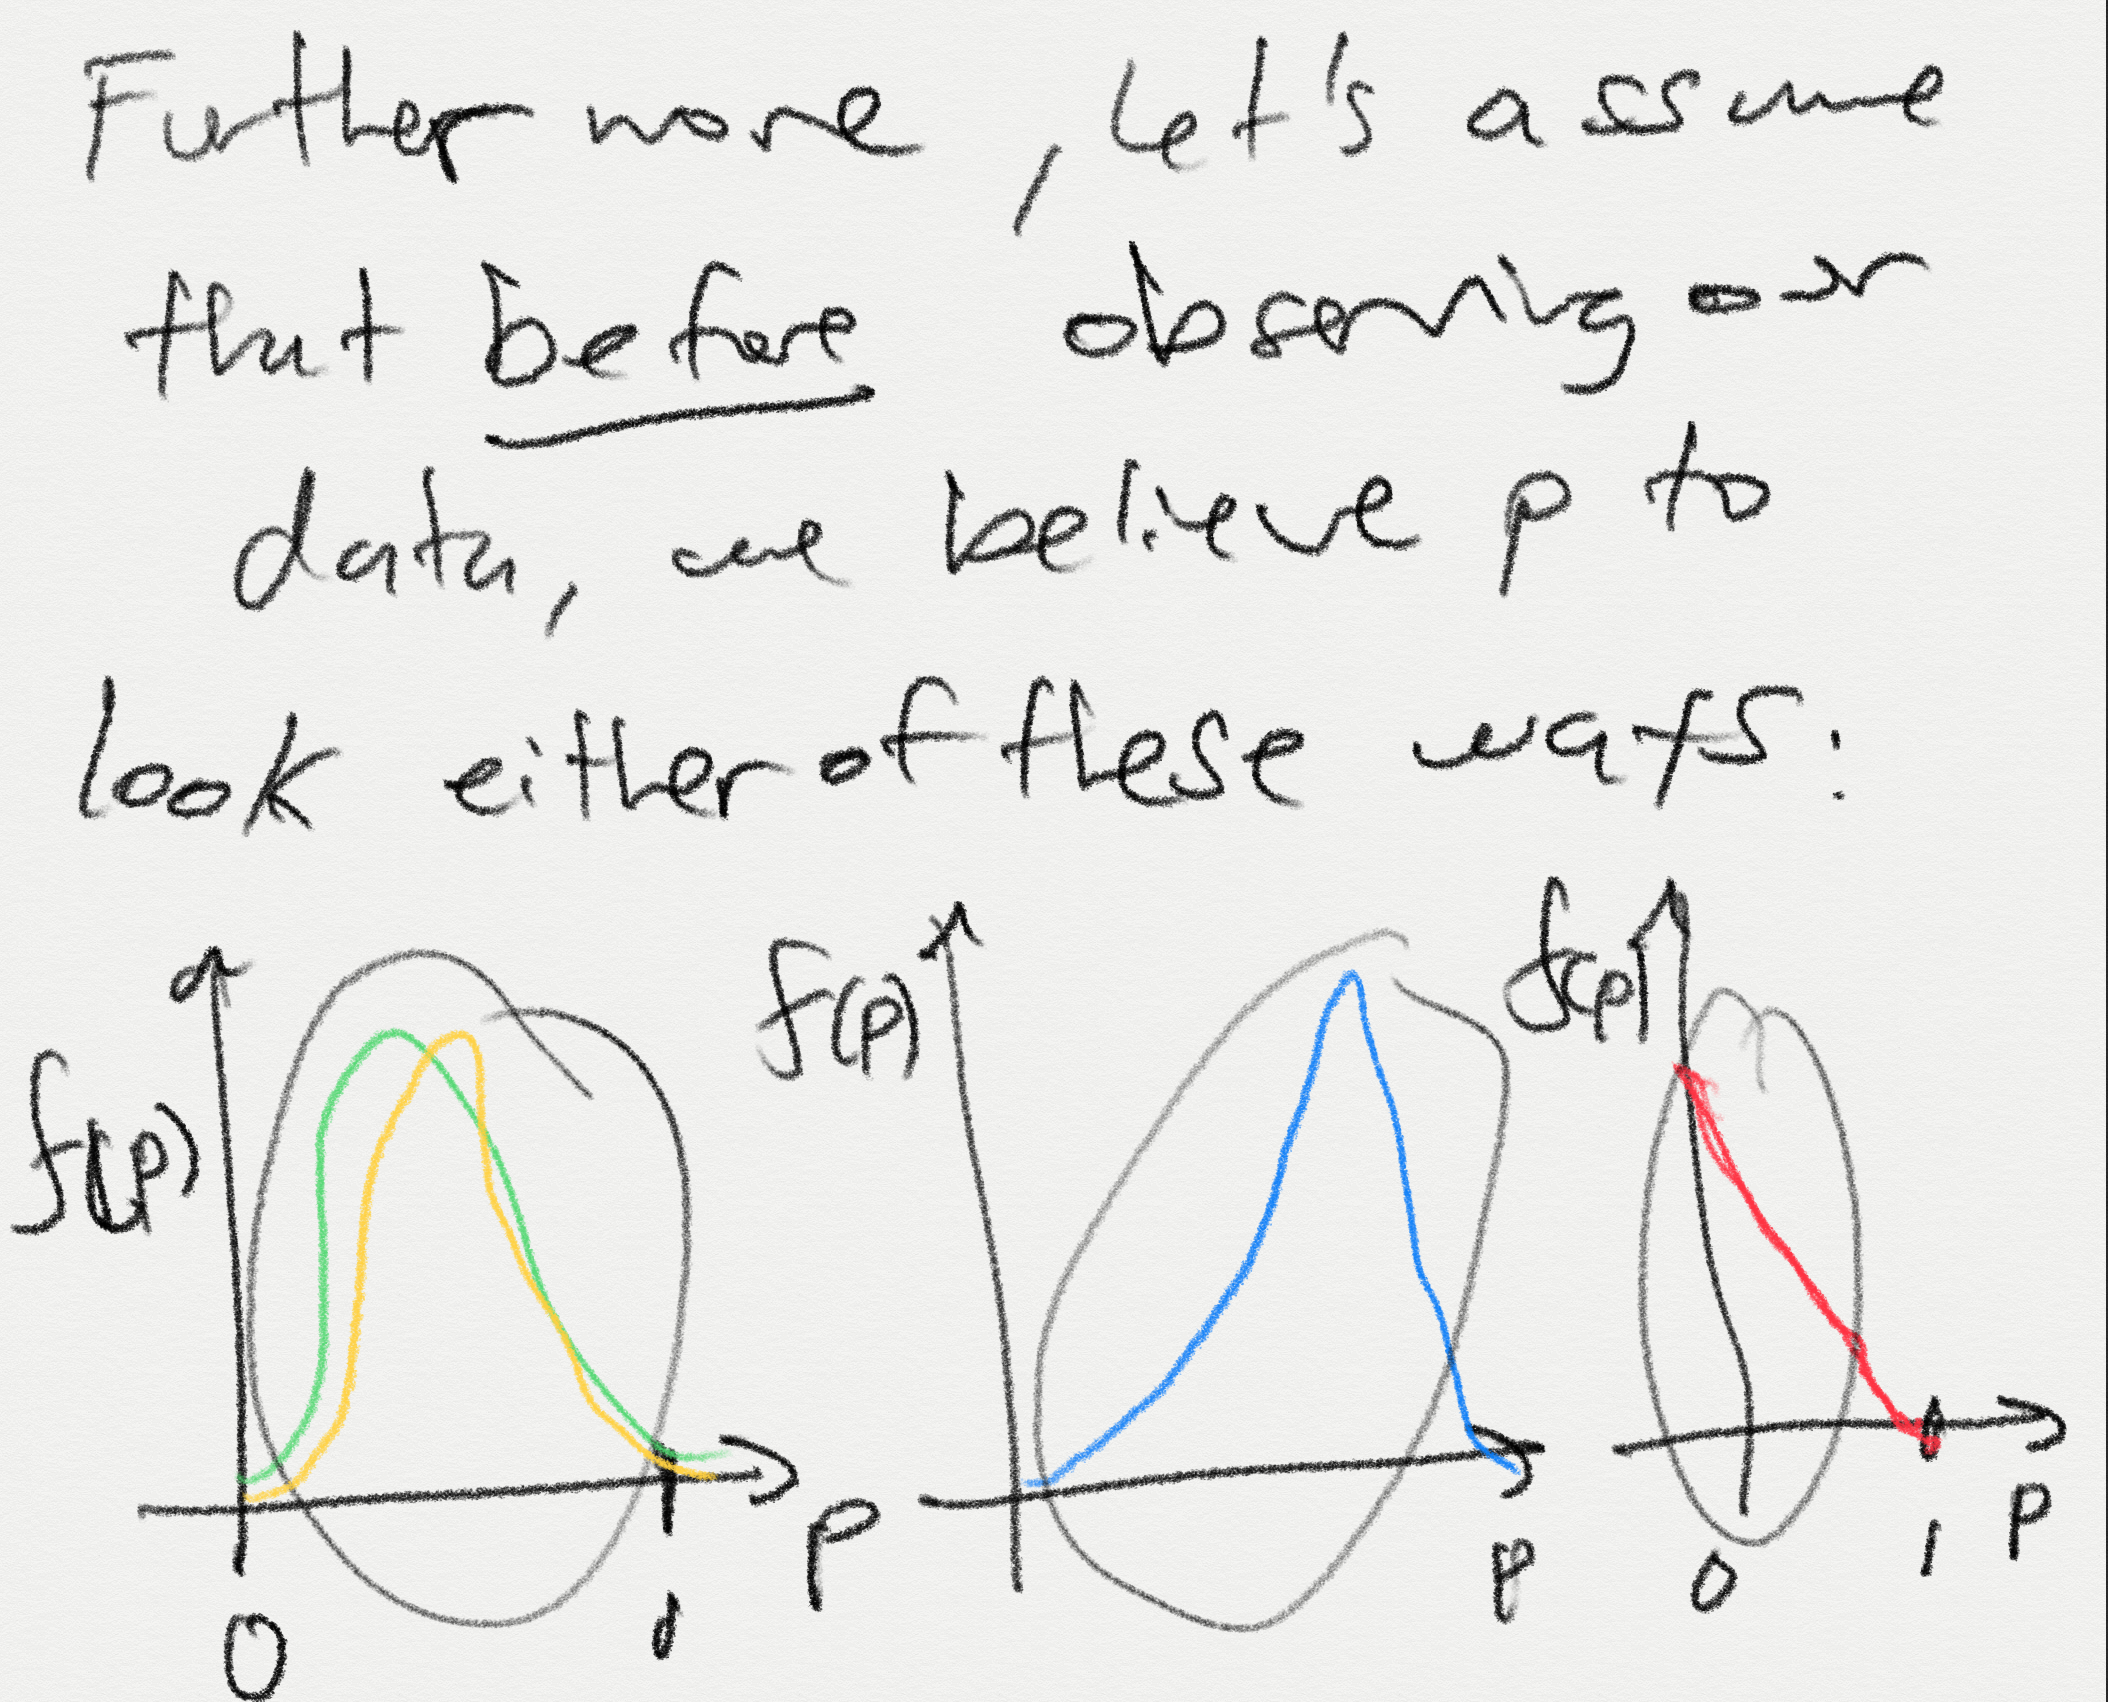 Further more, let's assume
that before observing our
data, we believe p to
look either of these ways:
f(p)
f(p)
f(p)
0
1
p
p
0
1
p